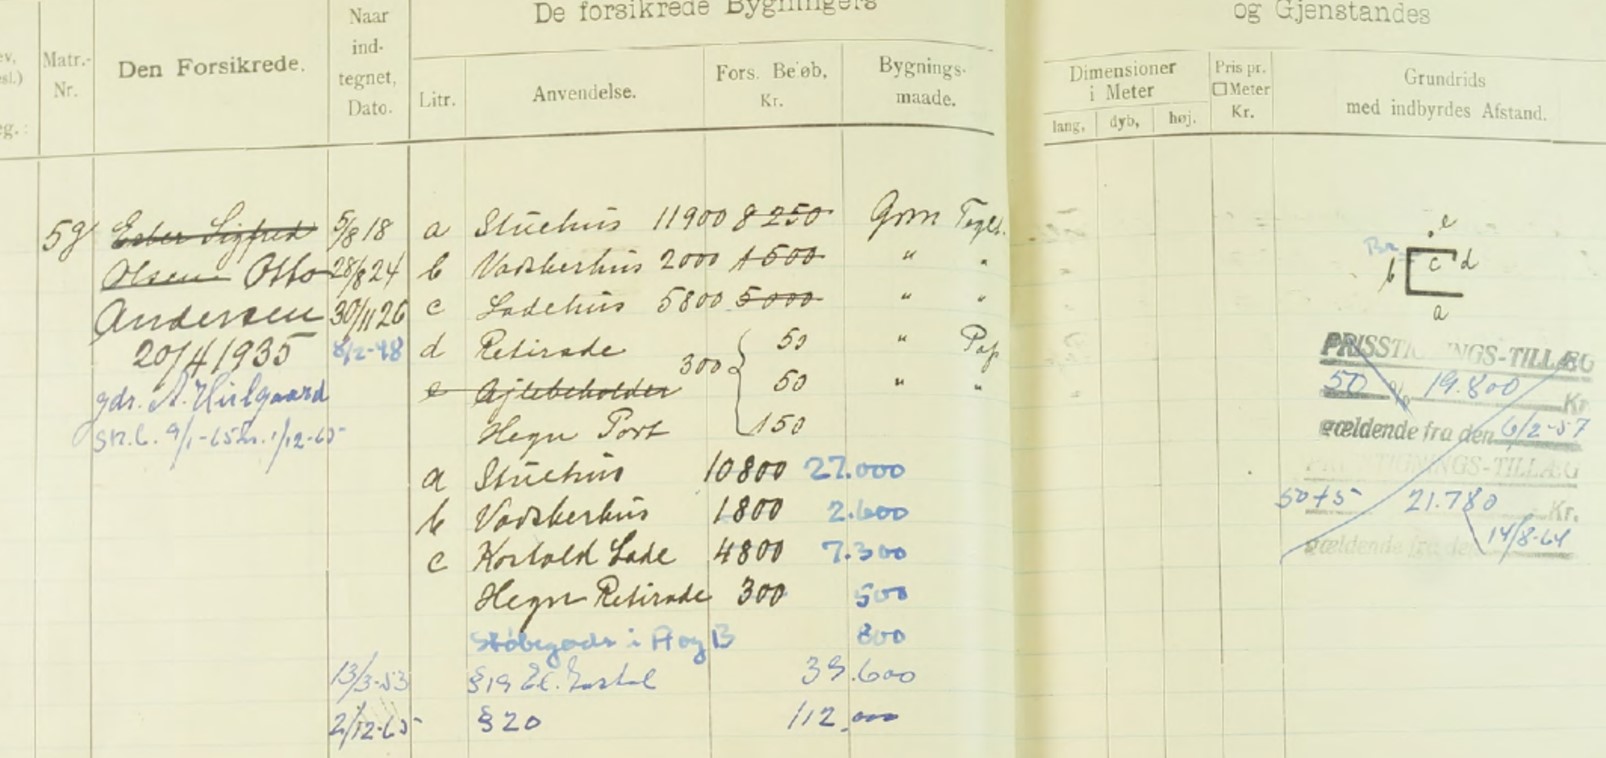 De forsikrede Bygningers og Gjenstandes
Matr.-Nr.
Den Forsikrede.
Naar ind-tegnet, Dato.
Litr.
Anvendelse.
Fors. Beløb, Kr.
Bygnings-maade.
Dimensioner i Meter
lang, dyb, høj.
Pris pr. □Meter Kr.
Grundrids med indbyrdes Afstand.
5g Esber Sigfred 5/8 18 a Stuehus 11900 8250 Grm Tegl.
Olsen Otto 28/8 24 b Vadskerhus 2000 1500 " "
Andersen 30/11 26 c Ladehus 5800 5000 " "
20/4 1935 8/2-48 d Retirade 300 50 " Pap
gdr. A. e Ajlebeholder 50 " "
9/1-65 1/12-65 Hegn Port 150
a Stuehus 10800 27.000
b Vadskerhus 1800 2.600
c Kostald Lade 4800 7.300
Hegn Retirade 300 500
Støbegods i A og B 800
13/3-53 §19 39.600
2/12-65 §20 112.000
e
b c d
a
PRISSTIGNINGS-TILLÆG
50 % 19.800 Kr.
gældende fra den 6/2-57
PRISSTIGNINGS-TILLÆG
50+5 21.780 Kr.
gældende fra den 14/8-64